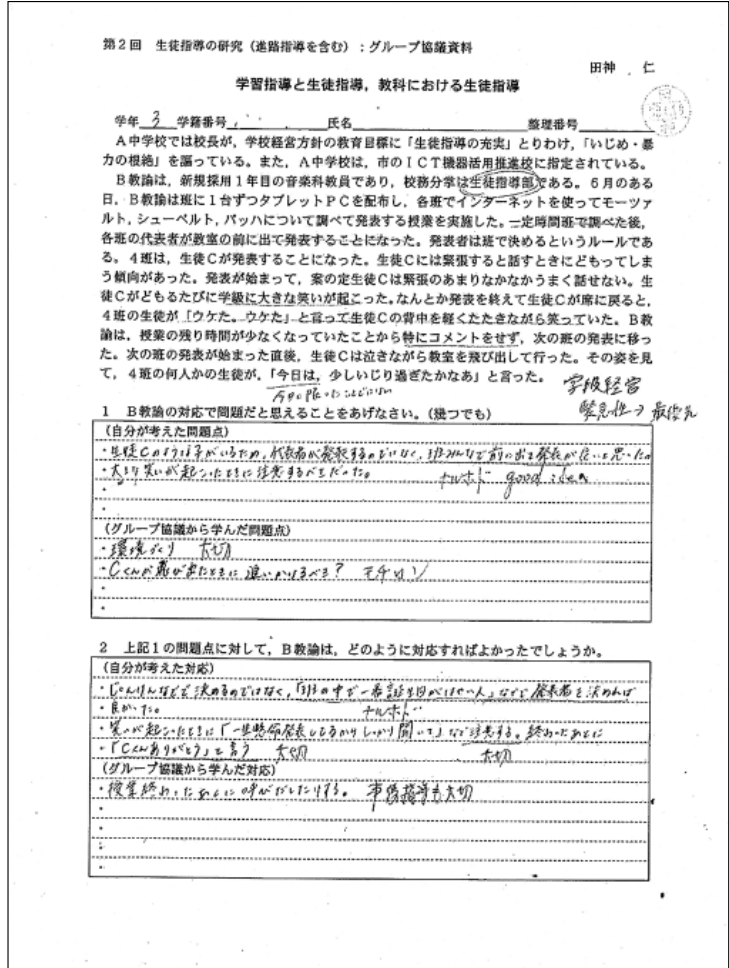 第2回 生徒指導の研究(進路指導を含む):グループ協議資料
田神 仁
学習指導と生徒指導,教科における生徒指導
学年 3 学籍番号 氏名 整理番号
A中学校では校長が,学校経営方針の教育目標に「生徒指導の充実」とりわけ,「いじめ・暴
力の根絶」を謳っている。また,A中学校は,市のICT機器活用推進校に指定されている。
B教諭は,新規採用1年目の音楽科教員であり,校務分掌は生徒指導部である。6月のある
日,B教諭は班に1台ずつタブレットPCを配布し,各班でインターネットを使ってモーツァ
ルト,シューベルト,バッハについて調べて発表する授業を実施した。一定時間班で調べた後,
各班の代表者が教室の前に出て発表することになった。発表者は班で決めるというルールであ
る。4班は,生徒Cが発表することになった。生徒Cには緊張すると話すときにどもってしま
う傾向があった。発表が始まって,案の定生徒Cは緊張のあまりなかなかうまく話せない。生
徒Cがどもるたびに学級に大きな笑いが起こった。なんとか発表を終えて生徒Cが席に戻ると,
4班の生徒が「ウケた。ウケた」と言って生徒Cの背中を軽くたたきながら笑っていた。B教
諭は,授業の残り時間が少なくなっていたことから特にコメントをせず,次の班の発表に移っ
た。次の班の発表が始まった直後,生徒Cは泣きながら教室を飛び出して行った。その姿を見
て,4班の何人かの生徒が,「今日は,少しいじり過ぎたかなあ」と言った。
学級経営
緊急性→最優先
1 B教諭の対応で問題だと思えることをあげなさい。(幾つでも)
(自分が考えた問題点)
・生徒Cのような子がいるため,代表者が発表するのではなく,班みんなで前に出て発表が良いと思った。
・大きな笑いが起こったときに注意するべきだった。
ナルホド good idea
・
・
(グループ協議から学んだ問題点)
・環境づくり 大切
・Cくんが飛び出たときに追いかけるべき? モチロン
・
・
2 上記1の問題点に対して,B教諭は,どのように対応すればよかったでしょうか。
(自分が考えた対応)
・じゃんけんなどで決めるのではなく,「班の中で一番誕生日がはやい人」などで発表者を決めれば
・良かった。 ナルホド
・笑いが起こったときに「一生懸命発表しているからしっかり聞いて」など注意する。終わったあとに
・「Cくんありがとう」と言う 大切 大切
(グループ協議から学んだ対応)
・授業終わったあとに呼びだしたりする。 事後指導も大切
・
・
・
・